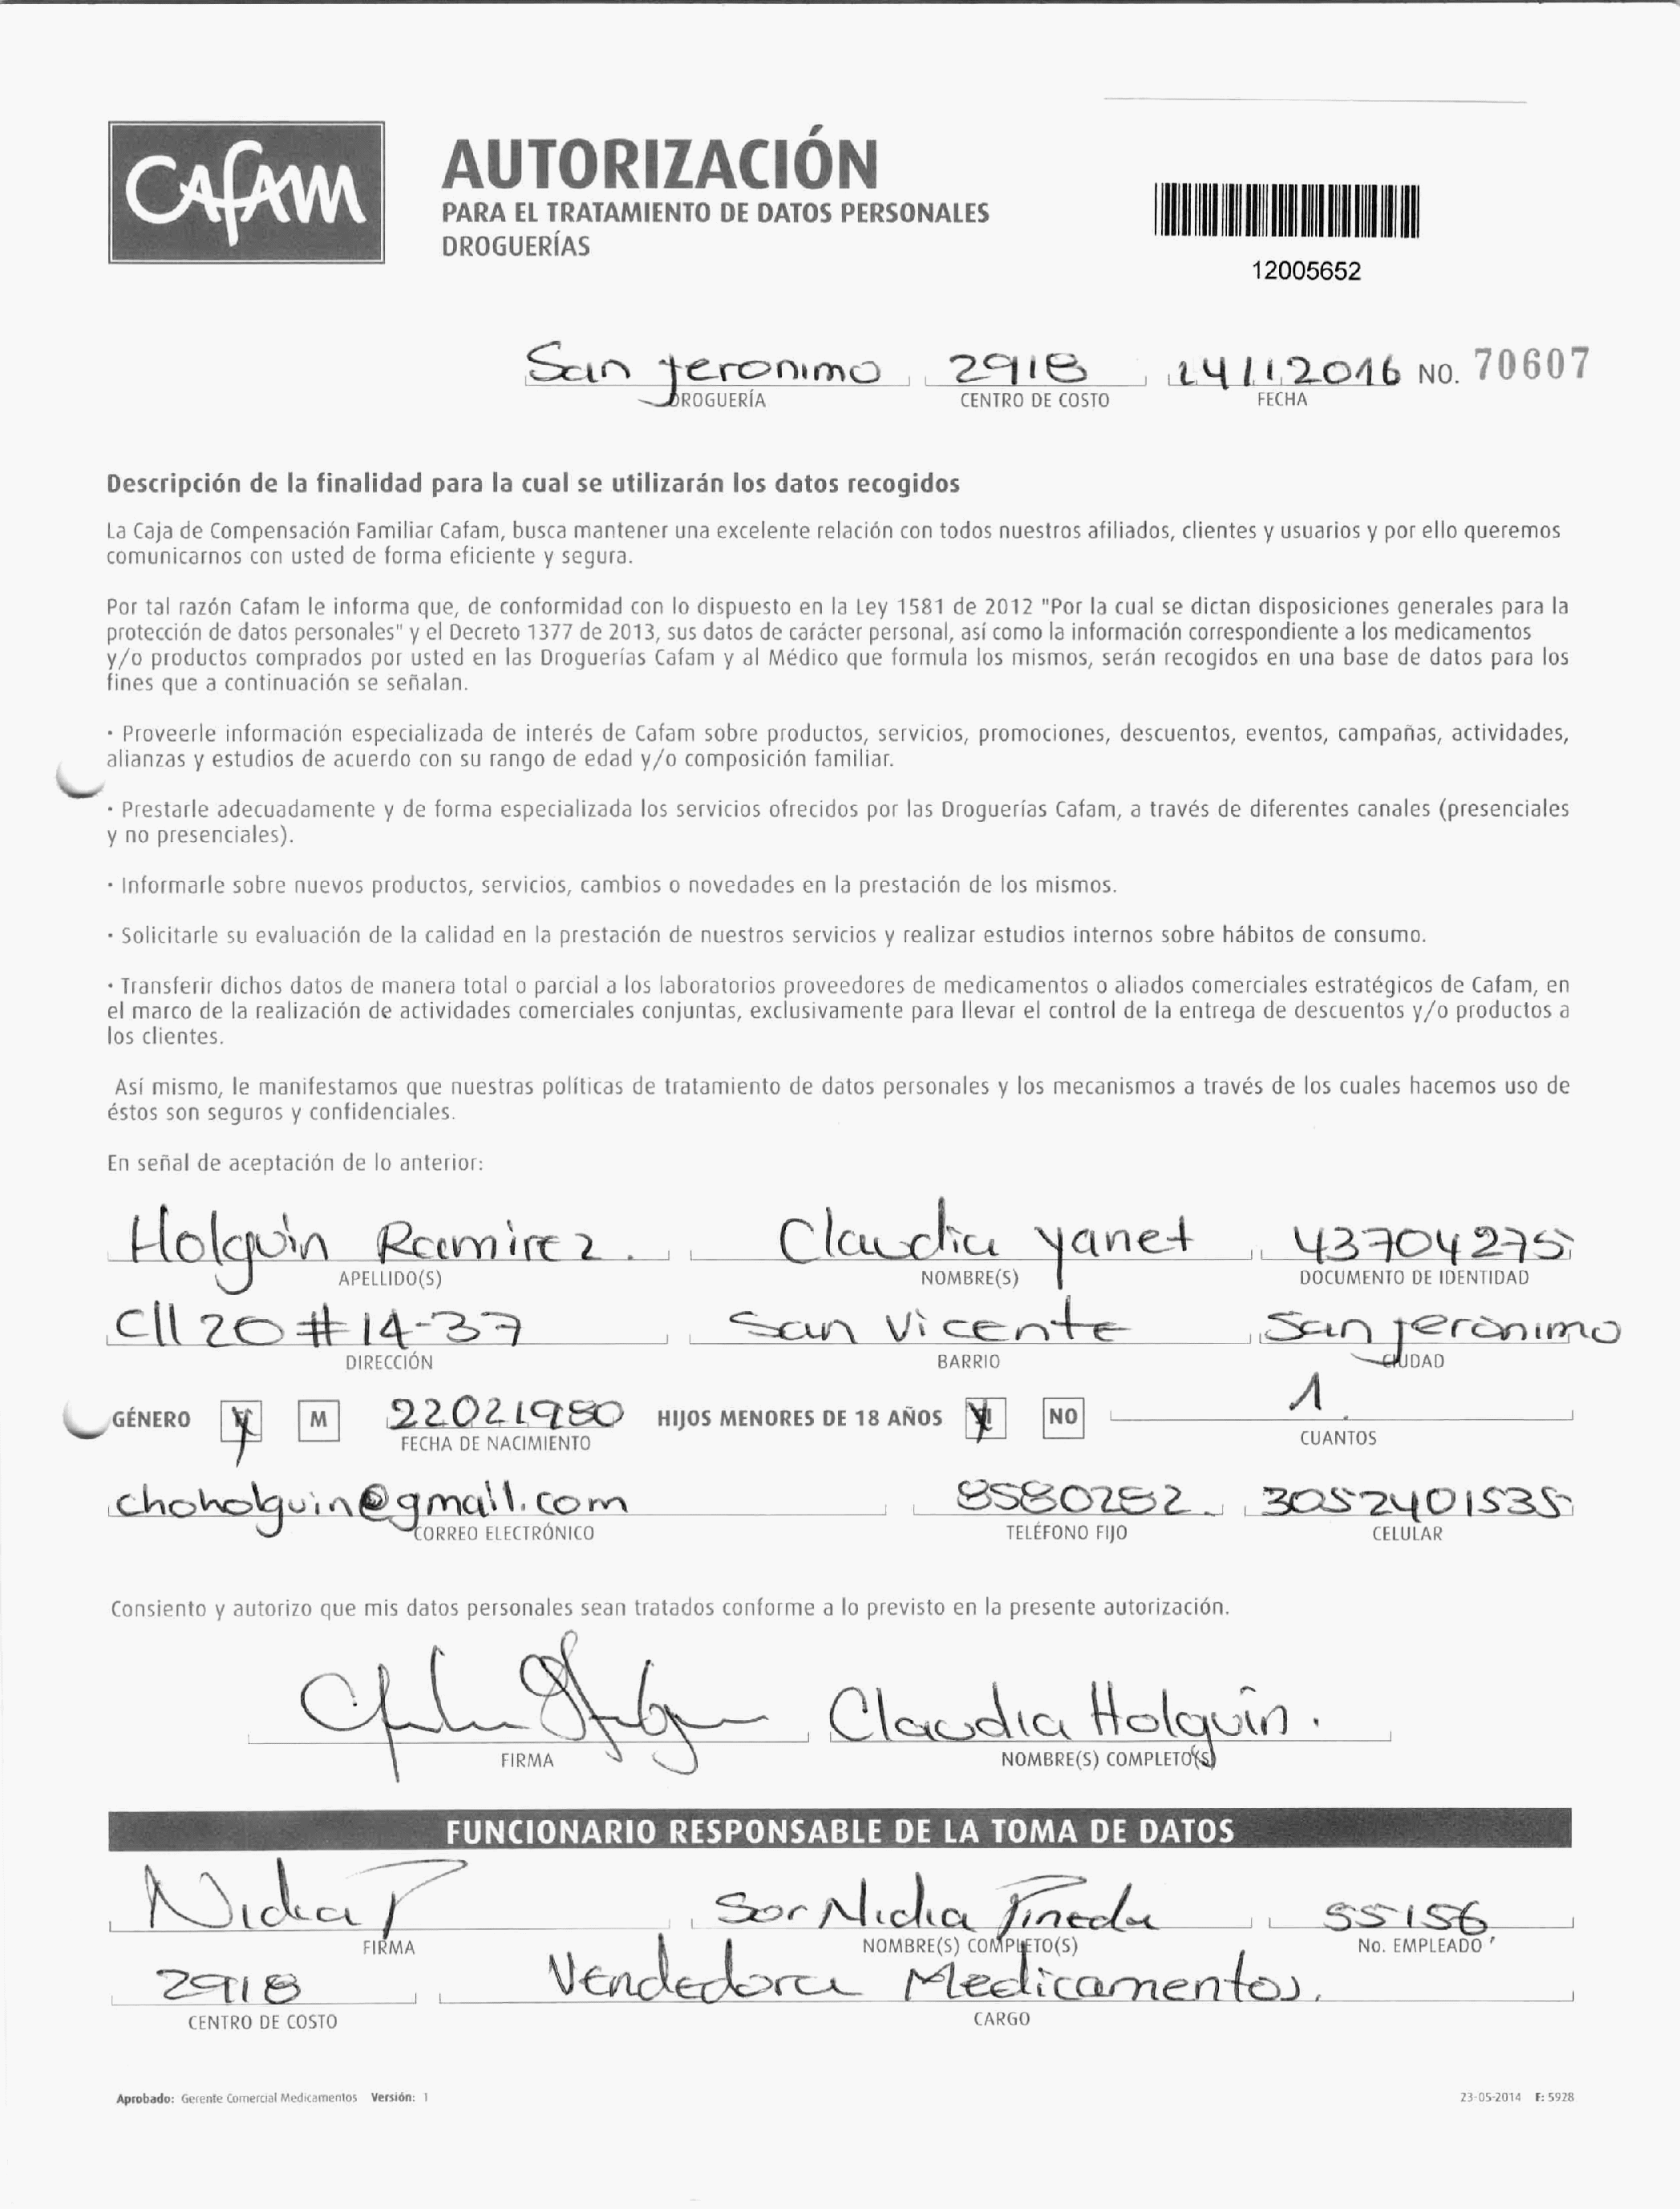 CAFAM
AUTORIZACIÓN
PARA EL TRATAMIENTO DE DATOS PERSONALES
DROGUERÍAS
12005652
San Jeronimo 2918 14112016 NO. 70607
DROGUERÍA CENTRO DE COSTO FECHA
Descripción de la finalidad para la cual se utilizarán los datos recogidos
La Caja de Compensación Familiar Cafam, busca mantener una excelente relación con todos nuestros afiliados, clientes y usuarios y por ello queremos
comunicarnos con usted de forma eficiente y segura.
Por tal razón Cafam le informa que, de conformidad con lo dispuesto en la Ley 1581 de 2012 "Por la cual se dictan disposiciones generales para la
protección de datos personales" y el Decreto 1377 de 2013, sus datos de carácter personal, así como la información correspondiente a los medicamentos
y/o productos comprados por usted en las Droguerías Cafam y al Médico que formula los mismos, serán recogidos en una base de datos para los
fines que a continuación se señalan.
· Proveerle información especializada de interés de Cafam sobre productos, servicios, promociones, descuentos, eventos, campañas, actividades,
alianzas y estudios de acuerdo con su rango de edad y/o composición familiar.
· Prestarle adecuadamente y de forma especializada los servicios ofrecidos por las Droguerías Cafam, a través de diferentes canales (presenciales
y no presenciales).
· Informarle sobre nuevos productos, servicios, cambios o novedades en la prestación de los mismos.
· Solicitarle su evaluación de la calidad en la prestación de nuestros servicios y realizar estudios internos sobre hábitos de consumo.
· Transferir dichos datos de manera total o parcial a los laboratorios proveedores de medicamentos o aliados comerciales estratégicos de Cafam, en
el marco de la realización de actividades comerciales conjuntas, exclusivamente para llevar el control de la entrega de descuentos y/o productos a
los clientes.
Así mismo, le manifestamos que nuestras políticas de tratamiento de datos personales y los mecanismos a través de los cuales hacemos uso de
éstos son seguros y confidenciales.
En señal de aceptación de lo anterior:
Holguin Ramirez. Claudia Yanet 43704275
APELLIDO(S) NOMBRE(S) DOCUMENTO DE IDENTIDAD
Cll 20 # 14-37 San Vicente San Jeronimo
DIRECCIÓN BARRIO CIUDAD
GÉNERO F M 22021980 HIJOS MENORES DE 18 AÑOS SI NO 1
FECHA DE NACIMIENTO CUANTOS
choholguin@gmail.com 8580282 3052401535
CORREO ELECTRÓNICO TELÉFONO FIJO CELULAR
Consiento y autorizo que mis datos personales sean tratados conforme a lo previsto en la presente autorización.
Claudia Holguin.
FIRMA NOMBRE(S) COMPLETO(S)
FUNCIONARIO RESPONSABLE DE LA TOMA DE DATOS
Nidia P Sor Nidia Pineda 55156
FIRMA NOMBRE(S) COMPLETO(S) No. EMPLEADO
2918 Vendedora Medicamentos.
CENTRO DE COSTO CARGO
Aprobado: Gerente Comercial Medicamentos Versión: 1 23-05-2014 F: 5928